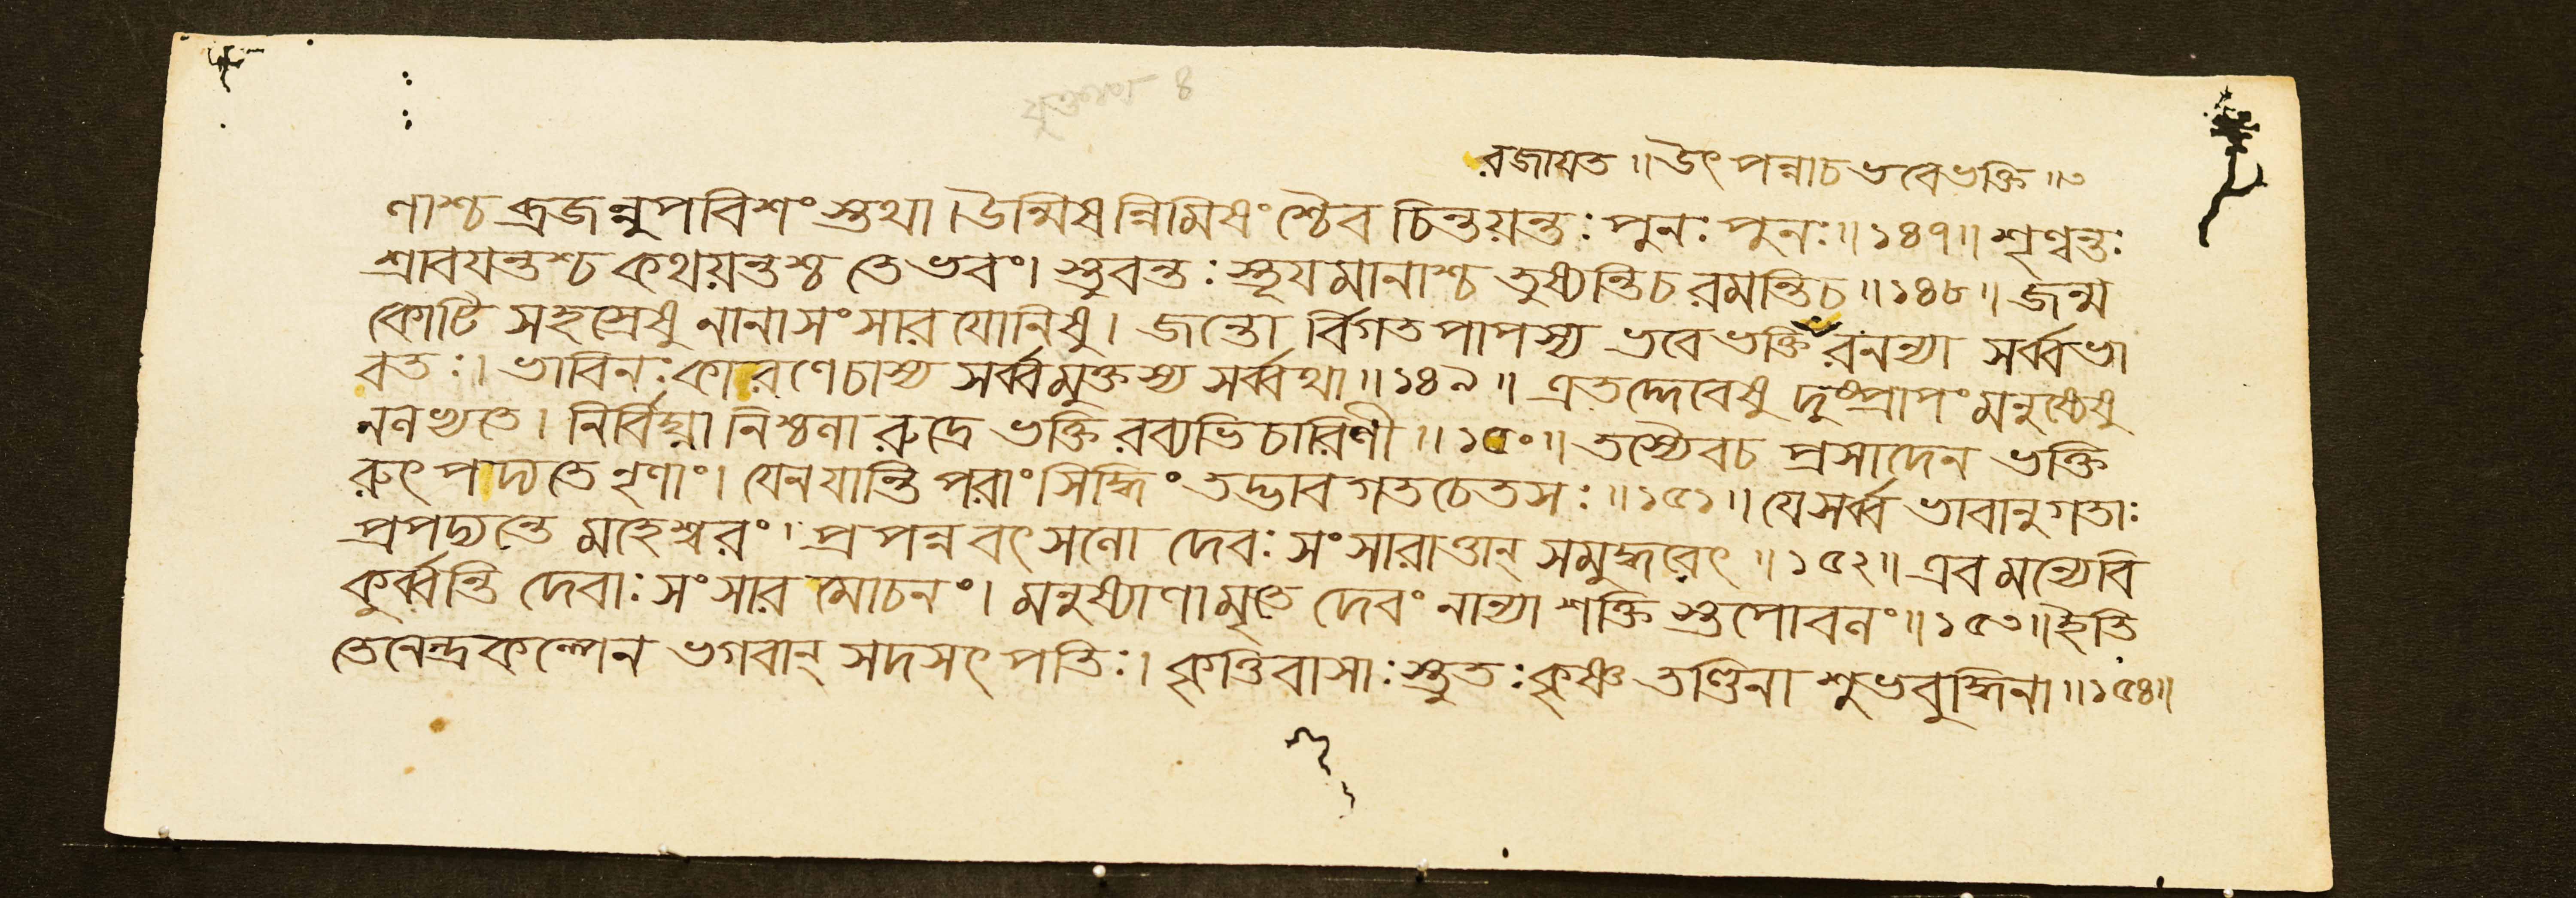 রজায়ত ॥ উৎপন্নাচ ভবেভক্তি ॥৩
ণাশ্চ ব্রজন্নুপবিশংস্তথা । উন্মিষন্নিমিষংশ্চৈব চিন্তয়ন্তঃ পুনঃ পুনঃ ॥ ১৪৭ ॥ শৃণ্বন্তঃ
শ্রাবযন্তশ্চ কথয়ন্তশ্চ তে ভবং । স্তুবন্তঃ স্তূযমানাশ্চ তুষ্যন্তিচ রমন্তিচ ॥ ১৪৮ ॥ জন্ম
কোটি সহস্রেষু নানাসংসার যোনিষু । জন্তো র্বিগত পাপস্য ভবে ভক্তি রনন্যা সর্ব্বভা
বতঃ । ভাবিনঃ কারণেচাস্য সর্ব্বমুক্তস্য সর্ব্বথা ॥ ১৪৯ ॥ এতদ্দেবেষু দুষ্প্রাপং মনুষ্যেষু
ননভ্যতে । নির্বিঘ্না নিশ্চনা রুদ্রে ভক্তি রব্যভিচারিণী ॥ ১৫০ ॥ তস্যৈবচ প্রসাদেন ভক্তি
রুৎপদ্যতে নৃণাং । যেনযান্তি পরাং সিদ্ধিং তদ্ভাব গতচেতসঃ ॥ ১৫১ ॥ যে সর্ব্ব ভাবানুগতাঃ
প্রপদ্যন্তে মহেশ্বরং । প্রপন্ন বৎসনো দেবঃ সংসারাত্তান্ সমুদ্ধরেৎ ॥ ১৫২ ॥ এব মন্যেবি
কুর্ব্বন্তি দেবাঃ সংসার মোচনং । মনুষ্যাণামৃতে দেবং নান্যা শক্তি স্তপোবনং ॥ ১৫৩ ॥ ইতি
তেনেন্দ্রকল্পেন ভগবান্ সদসৎপতিঃ । কৃত্তিবাসাঃ স্তুতঃ কৃষ্ণ তণ্ডিনা শুভবুদ্ধিনা ॥ ১৫৪ ॥